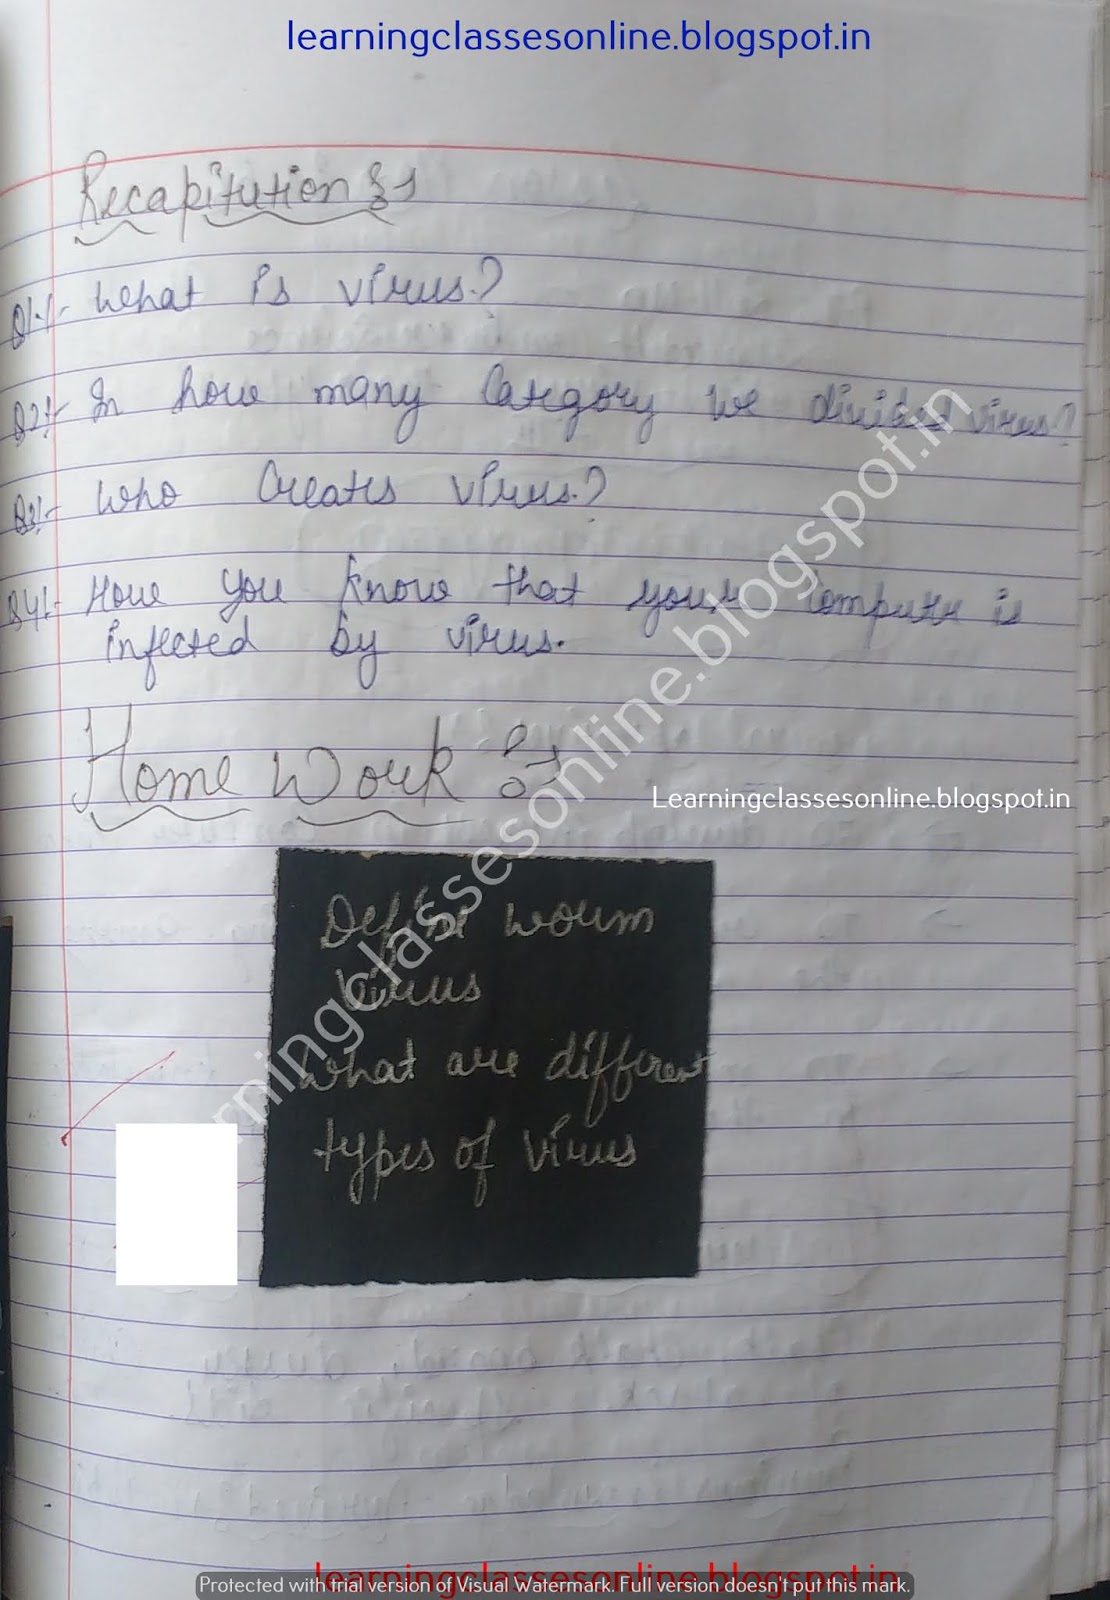 learningclassesonline.blogspot.in
Recapitution :-
Q1:- What is virus?
Q2:- In how many Category we divided virus?
Q3:- Who Creates virus?
Q4:- How you know that your Computer is
infected by virus.
Home Work :-
Learningclassesonline.blogspot.in
Define worm
Virus
What are different
types of virus
learningclassesonline.blogspot.in
learningclassesonline.blogspot.in
Protected with trial version of Visual Watermark. Full version doesn't put this mark.